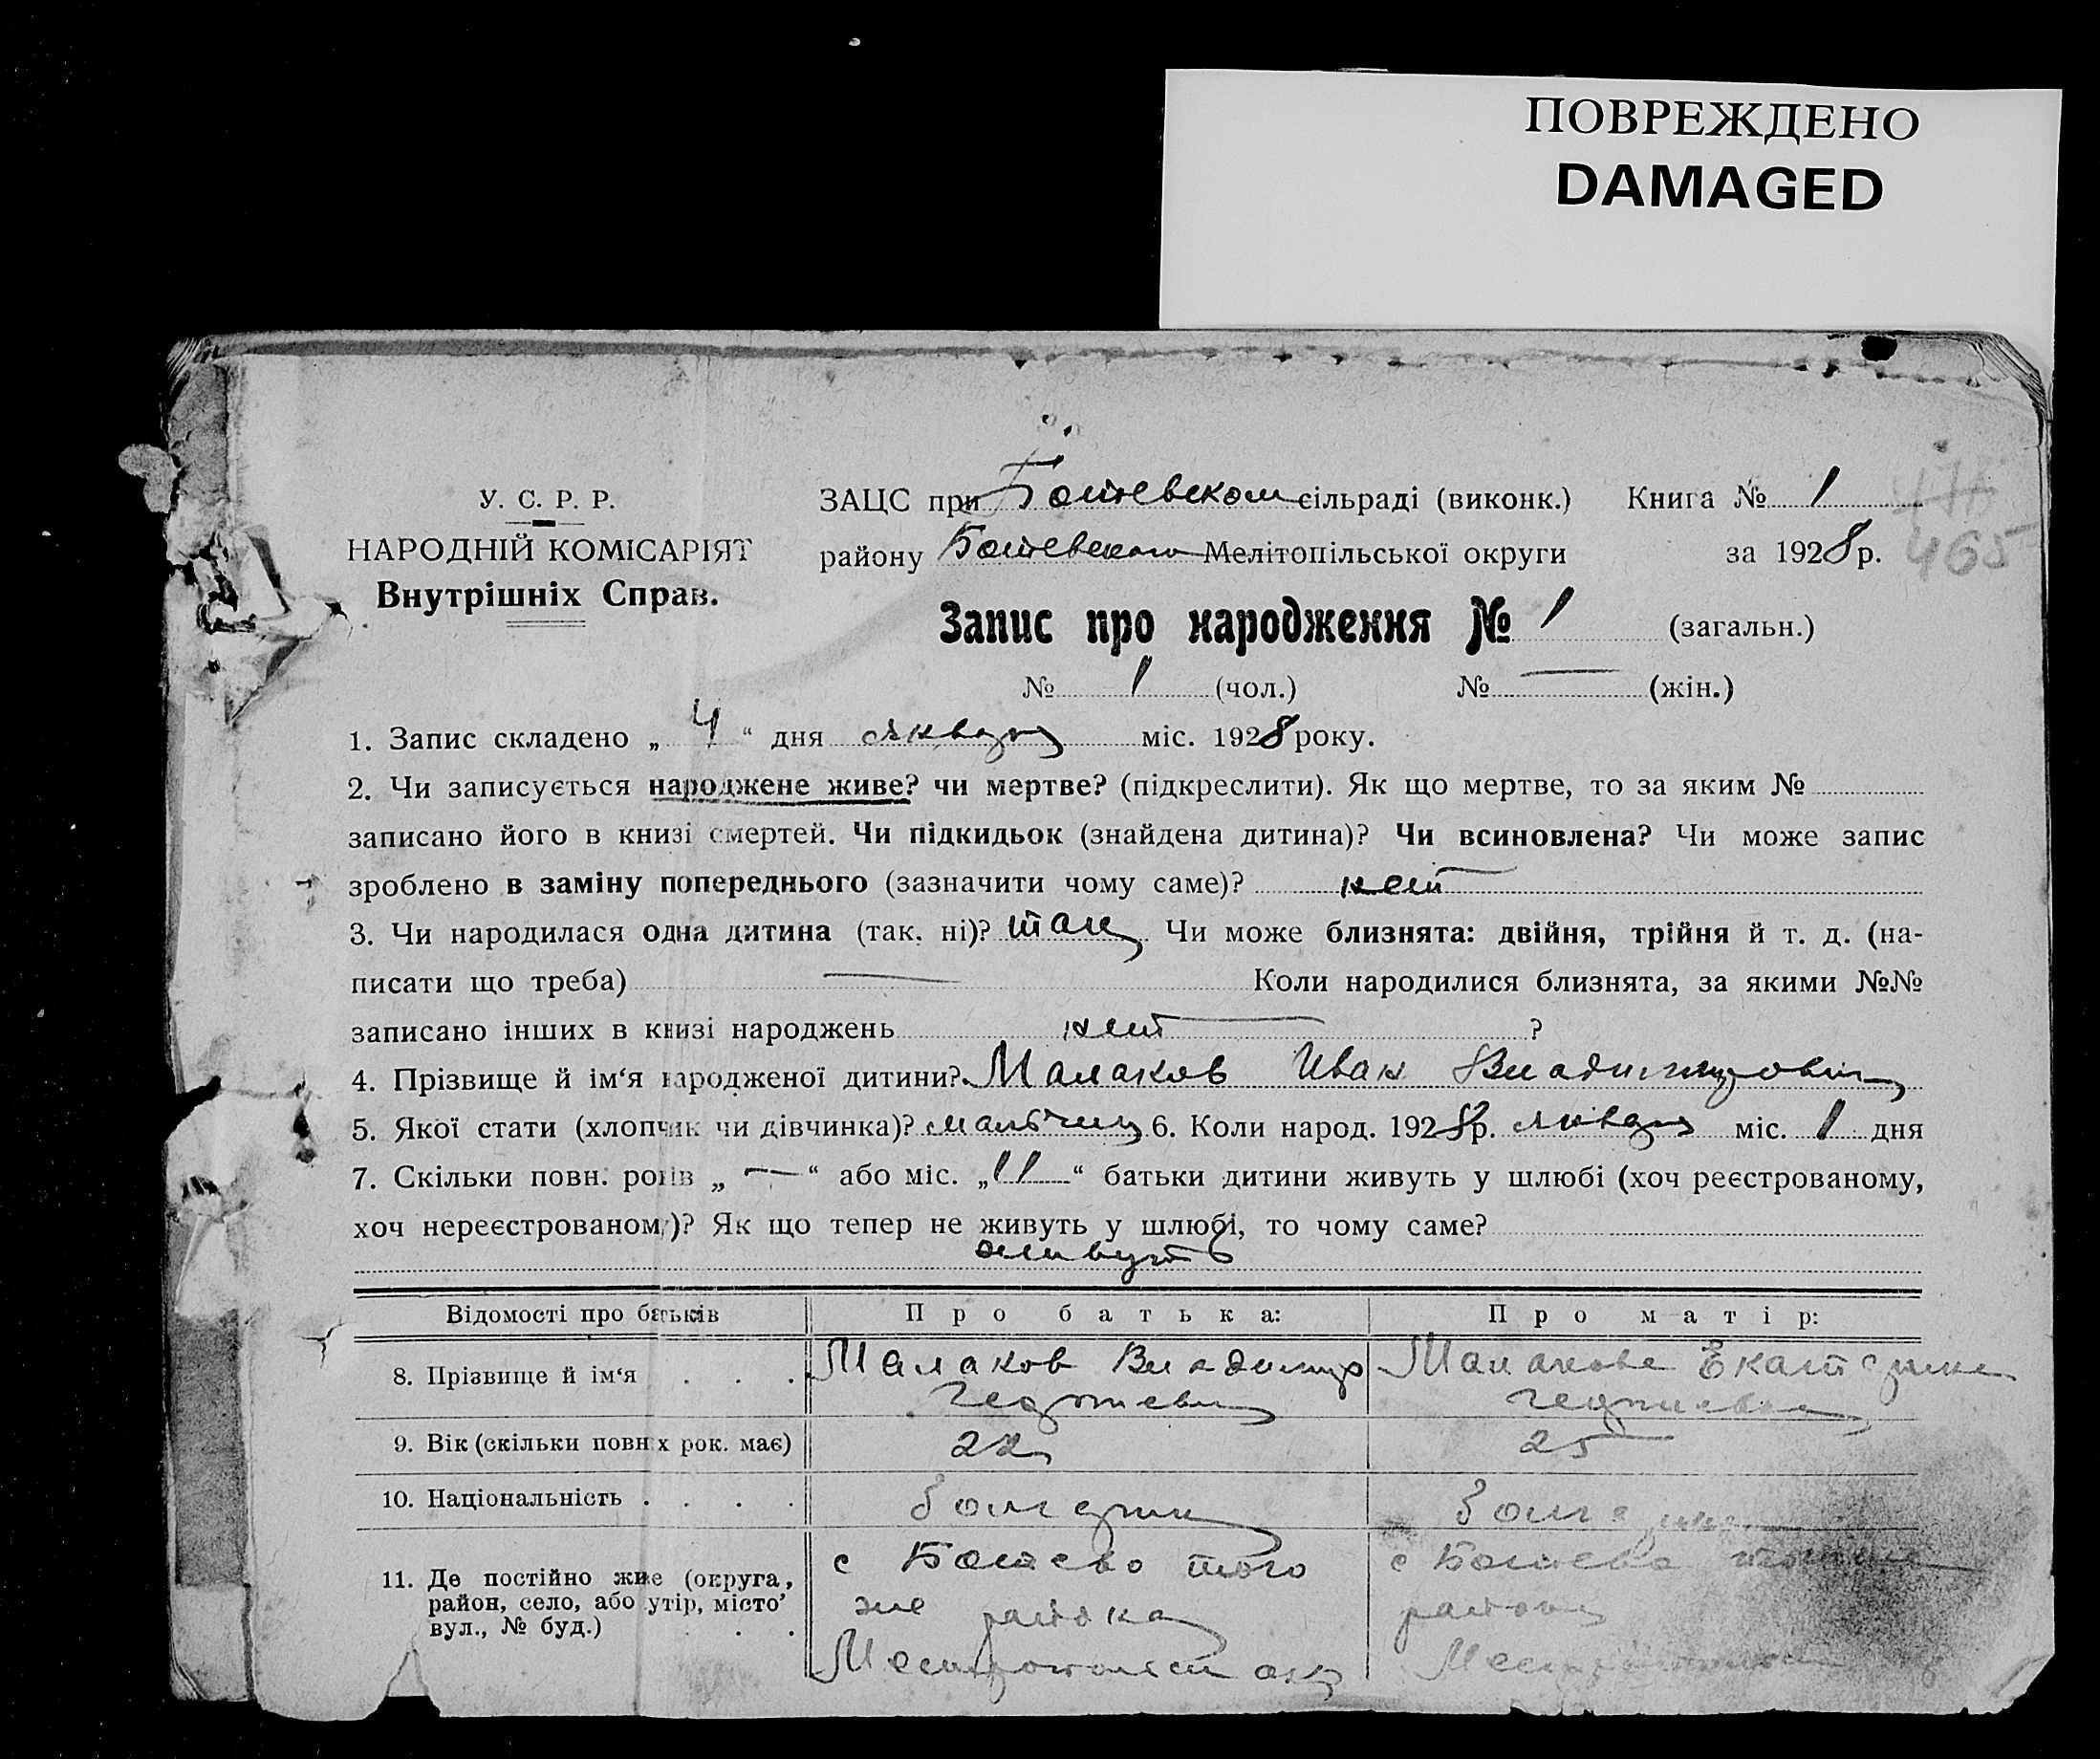 ПОВРЕЖДЕНО
DAMAGED
У. С. Р. Р.
НАРОДНІЙ КОМІСАРІЯТ
Внутрішніх Справ.
ЗАЦС при Ботевском сільраді (виконк.) Книга № 1
району Ботевского Мелітопільської округи за 1928 р.
465
Запис про народження № 1 (загальн.)
№ 1 (чол.) № — (жін.)
1. Запис складено „ 4 “ дня января міс. 1928 року.
2. Чи записується народжене живе? чи мертве? (підкреслити). Як що мертве, то за яким №
записано його в книзі смертей. Чи підкидьок (знайдена дитина)? Чи всиновлена? Чи може запис
зроблено в заміну попереднього (зазначити чому саме)? нет
3. Чи народилася одна дитина (так, ні)? так Чи може близнята: двійня, трійня й т. д. (на-
писати що треба) — Коли народилися близнята, за якими №№
записано інших в книзі народжень нет ?
4. Прізвище й ім‘я народженої дитини? Малаков Иван Владимирович
5. Якої стати (хлопчик чи дівчинка)? мальчик 6. Коли народ. 1928 р. января міс. 1 дня
7. Скільки повн. років „ — “ або міс. „ 11 “ батьки дитини живуть у шлюбі (хоч реєстрованому,
хоч нереєстрованому)? Як що тепер не живуть у шлюбі, то чому саме?
живут
Відомості про батьків Про батька: Про матір:
8. Прізвище й ім‘я . . . Малаков Владимир Малакова Екатерина
Георгиевич Георгиевна
9. Вік (скільки повних рок. має) 22 25
10. Національність . . . . болгарин болгарка
11. Де постійно живе (округа, район, село, або хутір, місто, вул., № буд.) . . .
с Ботево того с Ботево того же
же района района
Мелитопольск окр Мелитопольск